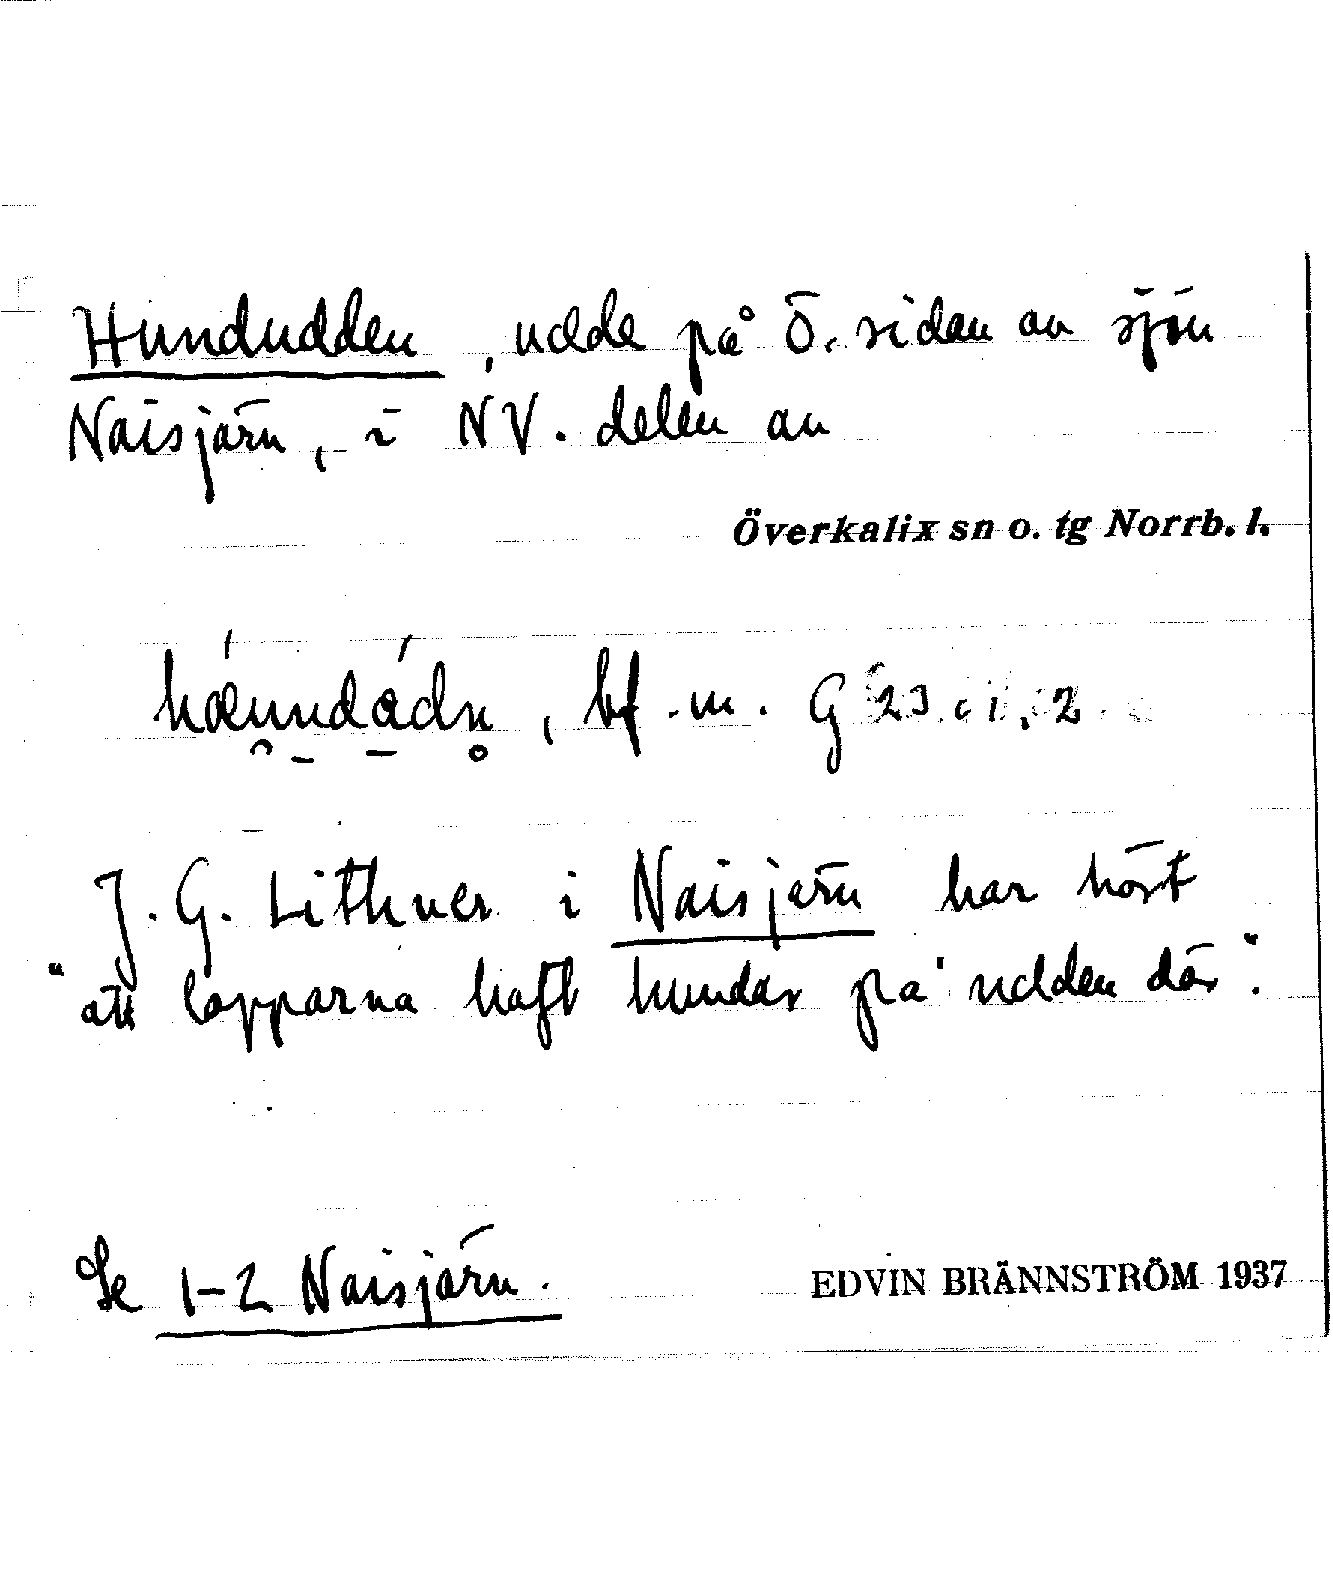 Hundudden, udde på Ö. sidan av sjön
Naisjärn, i NV. delen av
Överkalix sn o. tg Norrb. l.
bf. m. G
J. G. Lithner i Naisjärn har hört
"att lapparna haft hundar på udden där".
Se 1-2 Naisjärn.
EDVIN BRÄNNSTRÖM 1937